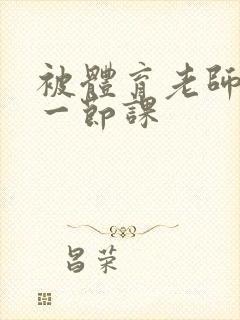 被體育老師
一節課
昌荣